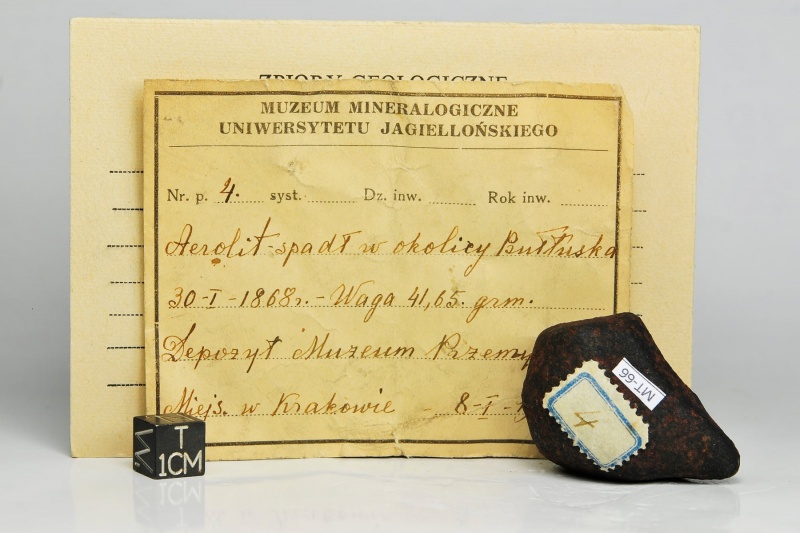 ZBIORY GEOLOGICZNE
MUZEUM MINERALOGICZNE
UNIWERSYTETU JAGIELLOŃSKIEGO
Nr. p. 4. syst. Dz. inw. Rok inw.
Aerolit-spadł w okolicy Pułtuska
30-I-1868r.-Waga 41,65. grm.
Depozyt Muzeum Przemy
Miejs. w Krakowie - 8-I-
4
MT-66
T
1CM